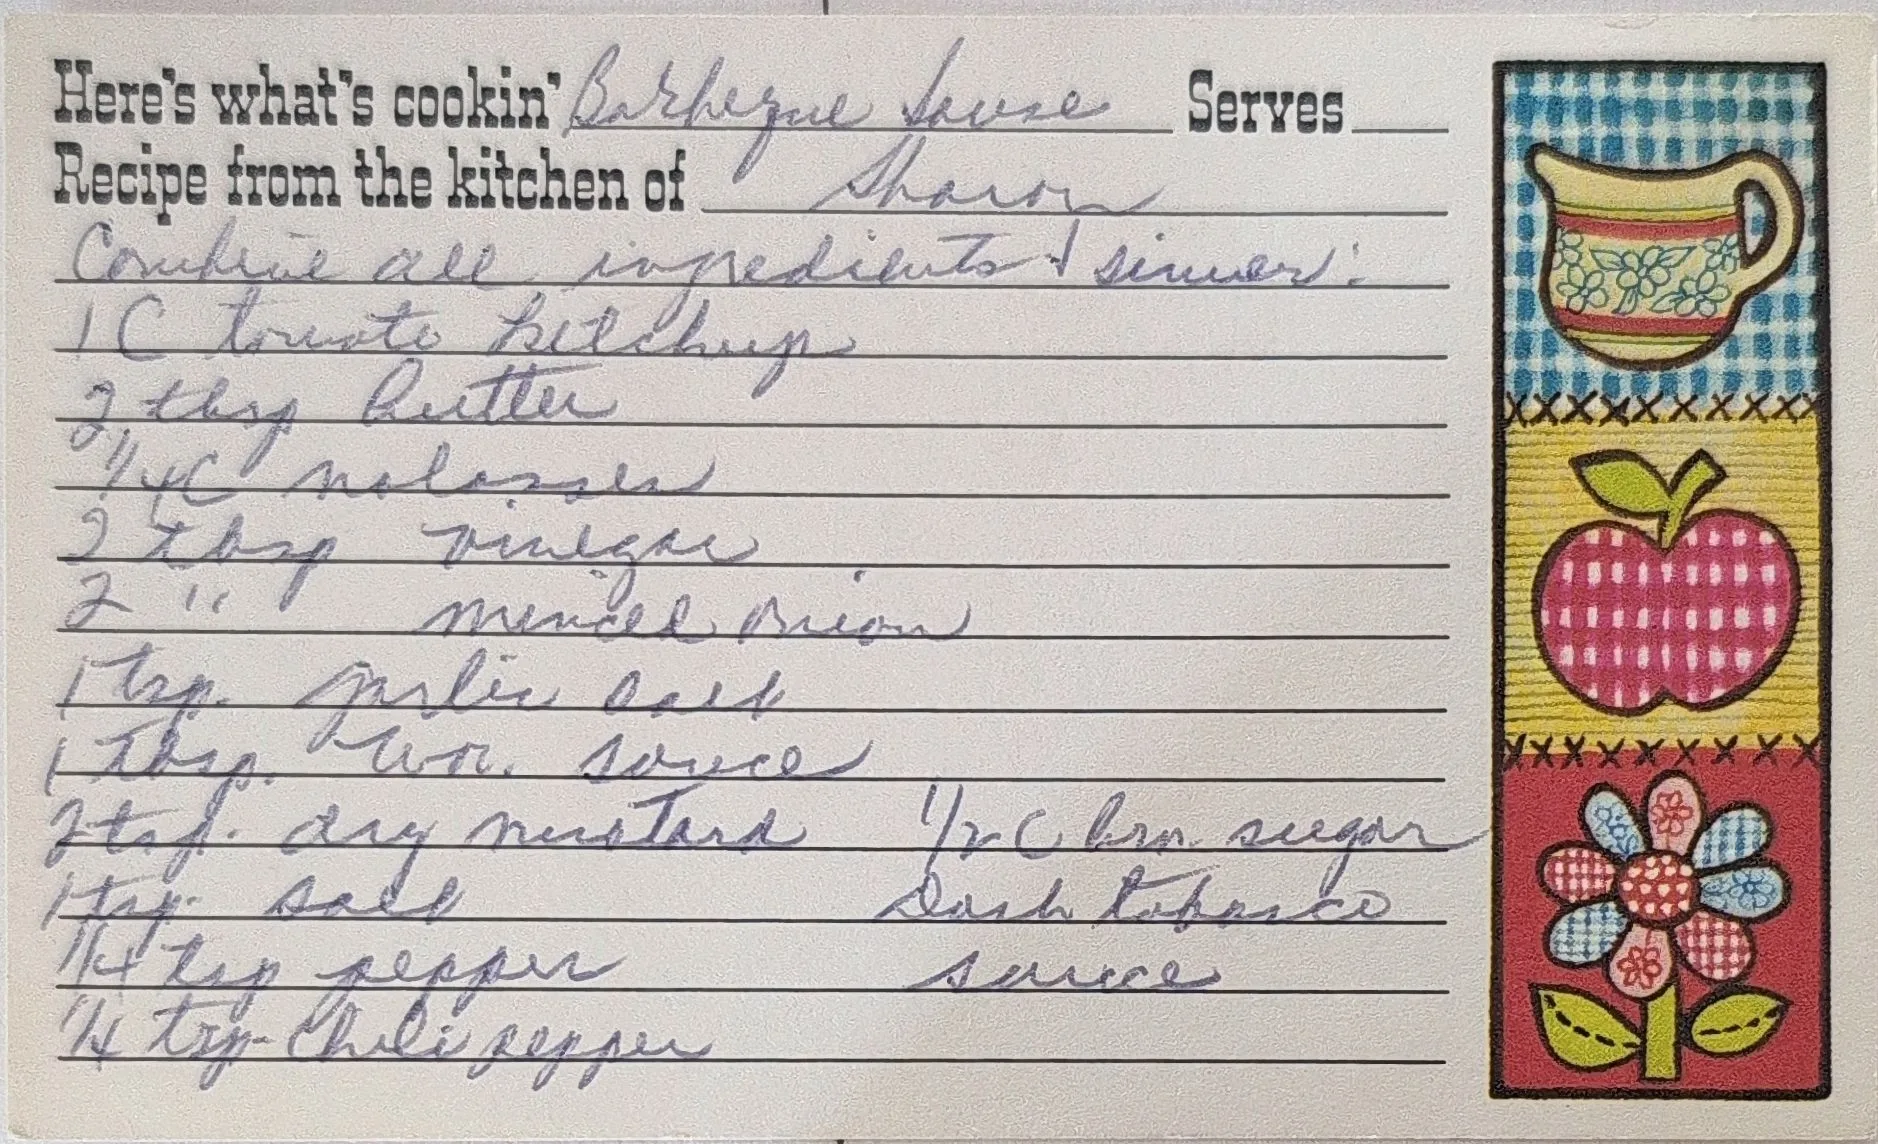 Here's what's cookin' Barbeque Sause Serves
Recipe from the kitchen of Sharon
Combine all ingredients & simmer:
1 C tomato ketchup
2 tbsp butter
1/4 C molasses
2 tbsp vinegar
2 " minced onion
1 tsp. garlic salt
1 tbsp. wor. sauce
2 tsp. dry mustard 1/2 C brn sugar
1 tsp. salt Dash tobasco
1/4 tsp pepper sauce
1/4 tsp. chili pepper